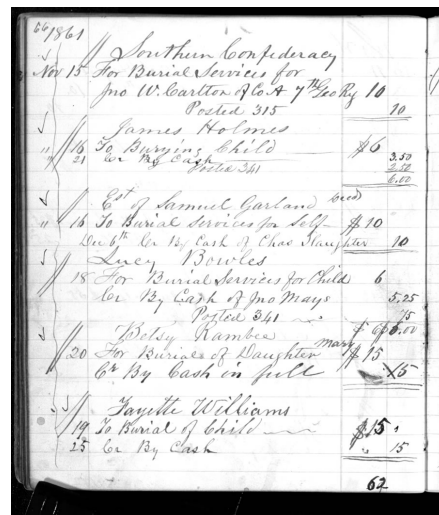 66 1861
Southern Confederacy
Nov 15 For Burial Services for
Jno W. Carlton of Co. A 7th Geo Rg 10
Posted 315 10
James Holmes
" 16 To Burying Child $6
" 21 Cr By Cash 3.50
Posted 341 2.50
6.00
Est of Samuel Garland Decd
" 16 To Burial Services for Self $10
Dec 6th Cr By Cash of Chas Slaughter 10
Lucy Bowles
18 For Burial Services for Child 6
Cr By Cash of Jno Mays 5.25
Posted 341 75
$6 6.00
Betsy Rambee
20 For Burial of Daughter Mary $15
Cr By Cash in full 15
Fayette Williams
19 To Burial of Child $15
25 Cr By Cash " 15
62